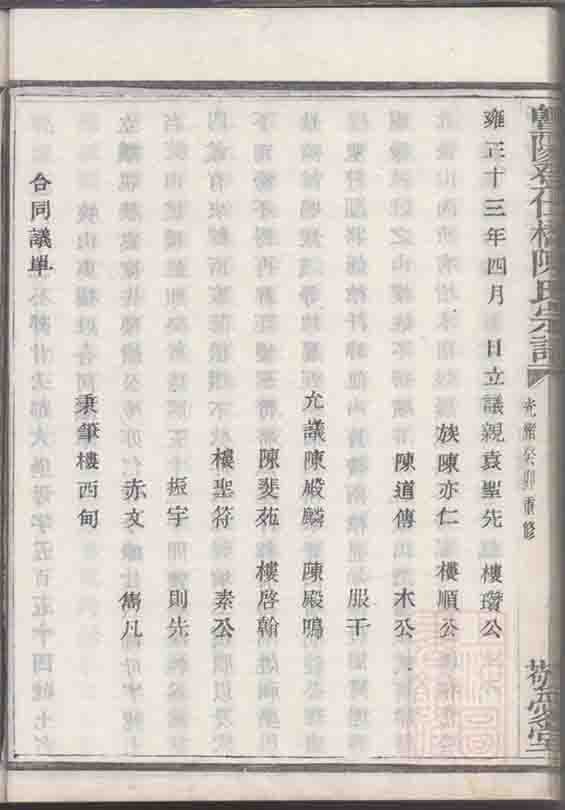 暨陽孝仁橋陳氏宗譜
光緒癸卯重修
敬愛堂
雍正十三年四月 日立議親袁聖先 樓瓚公
族陳亦仁 樓順公
陳道傳 木公
服千
允議陳殿麟 陳殿鳴
陳斐苑 樓啓翰
樓聖符 素公
振宇 則先
赤文 雋凡
秉筆樓西甸
合同議單